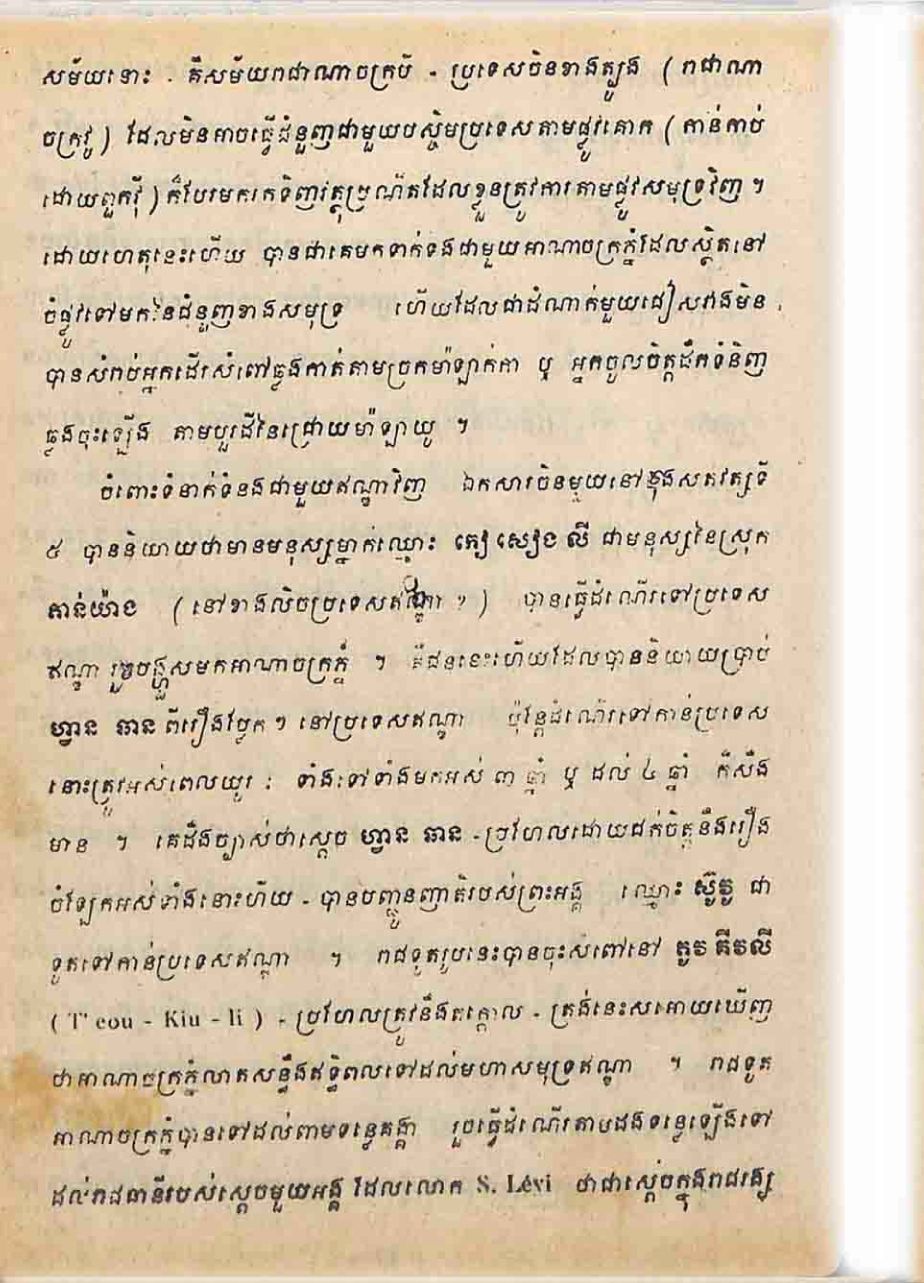 សម័យនោះ - គឺសម័យរាជាណាចក្របី - ប្រទេសចិនខាងត្បូង ( រាជាណា
ចក្រវូ ) ដែលមិនអាចធ្វើជំនួញជាមួយបស្ចិមប្រទេសតាមផ្លូវគោក ( កាន់កាប់
ដោយពួកវ៉ី ) ក៏បែរមករកទិញវត្ថុប្រណីតដែលខ្លួនត្រូវការតាមផ្លូវសមុទ្រវិញ ។
ដោយហេតុនេះហើយ បានជាគេមកទាក់ទងជាមួយអាណាចក្រភ្នំដែលស្ថិតនៅ
ចំផ្លូវទៅមកនៃជំនួញខាងសមុទ្រ ហើយដែលជាដំណាក់មួយជៀសវាងមិន
បានសំរាប់អ្នកដើរសំពៅឆ្លងកាត់តាមច្រកម៉ាឡាក់កា ឬ អ្នកចូលចិត្តដឹកទំនិញ
ឆ្លងចុះឡើង តាមបួរដីនៃជ្រោយម៉ាឡាយូ ។
ចំពោះទំនាក់ទំនងជាមួយឥណ្ឌាវិញ ឯកសារចិនមួយនៅក្នុងសតវត្សទី
៥ បាននិយាយថាមានមនុស្សម្នាក់ឈ្មោះ គៀ សៀង លី ជាមនុស្សនៃស្រុក
តាន់យ៉ាង ( នៅខាងលិចប្រទេសឥណ្ឌា ? ) បានធ្វើដំណើរទៅប្រទេស
ឥណ្ឌា រួចបង្ហួសមកអាណាចក្រភ្នំ ។ គឺជននេះហើយដែលបាននិយាយប្រាប់
ហ្វាន ឆាន ពីរឿងប្លែក ៗ នៅប្រទេសឥណ្ឌា ប៉ុន្តែដំណើរទៅកាន់ប្រទេស
នោះត្រូវអស់ពេលយូរ : ទាំងទៅទាំងមកអស់ ៣ ឆ្នាំ ឬ ដល់ ៤ ឆ្នាំ ក៏សឹង
មាន ។ គេដឹងច្បាស់ថាស្តេច ហ្វាន ឆាន - ប្រហែលដោយដក់ចិត្តនឹងរឿង
ចំឡែកអស់ទាំងនោះហើយ - បានបញ្ជូនញាតិរបស់ព្រះអង្គ ឈ្មោះ ស៊ូវូ ជា
ទូតទៅកាន់ប្រទេសឥណ្ឌា ។ រាជទូតរូបនេះបានចុះសំពៅនៅ តូវ គីវលី
( T' eou - Kiu - li ) - ប្រហែលត្រូវនឹងតក្កោល - ត្រង់នេះសអោយឃើញ
ថាអាណាចក្រភ្នំលាតសន្ធឹងឥទ្ធិពលទៅដល់មហាសមុទ្រឥណ្ឌា ។ រាជទូត
អាណាចក្រភ្នំបានទៅដល់ពាមទន្លេគង្គា រួចធ្វើដំណើរតាមដងទន្លេឡើងទៅ
ដល់រាជធានីរបស់ស្តេចមួយអង្គ ដែលលោក S. Lévi ថាជាស្តេចក្នុងរាជវង្ស